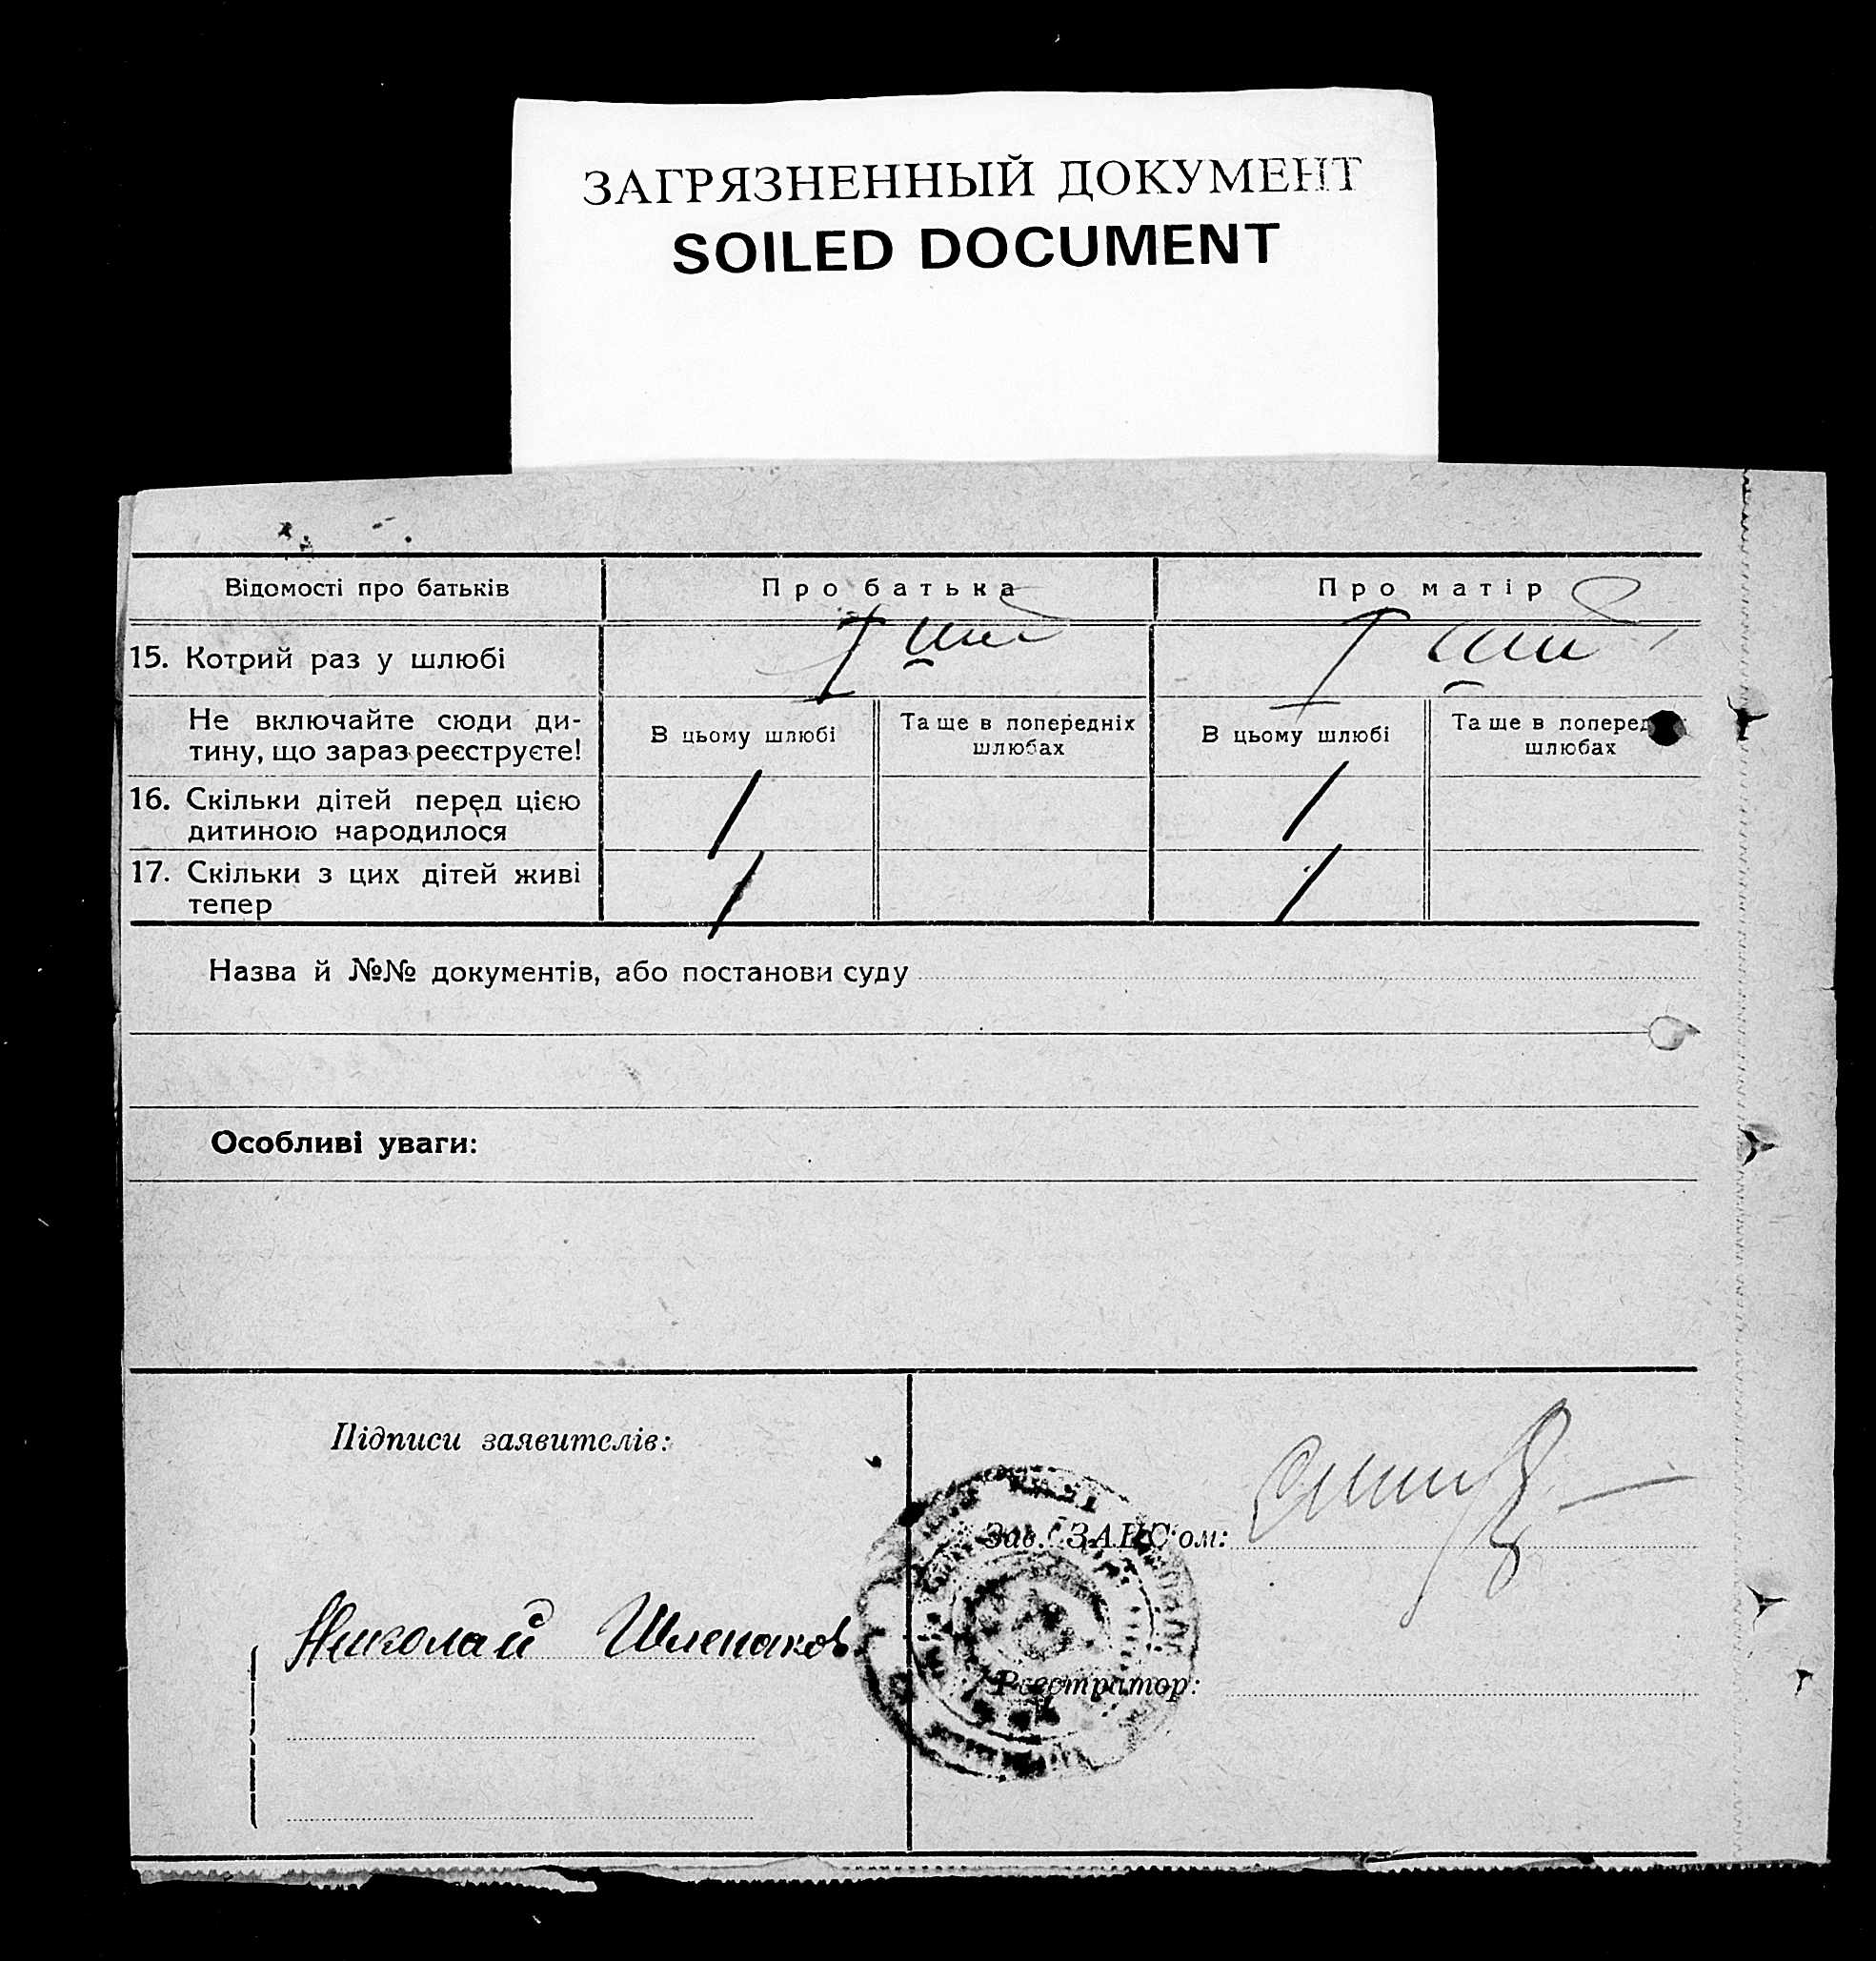 ЗАГРЯЗНЕННЫЙ ДОКУМЕНТ
SOILED DOCUMENT
Відомості про батьків
Про батька
Про матір
15. Котрий раз у шлюбі
I ший
I ший
Не включайте сюди ди-
тину, що зараз реєструєте!
В цьому шлюбі
Та ще в попередніх
шлюбах
В цьому шлюбі
Та ще в поперед
шлюбах
16. Скільки дітей перед цією
дитиною народилося
/
/
17. Скільки з цих дітей живі
тепер
/
/
Назва й №№ документів, або постанови суду
Особливі уваги:
Підписи заявителів:
Зав. ЗАГС'ом:
Николай Шлепаков
Реєстратор: